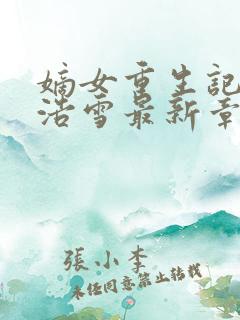 嫡女重生記
浩雪最新章
張小李
未任同意禁止轉載